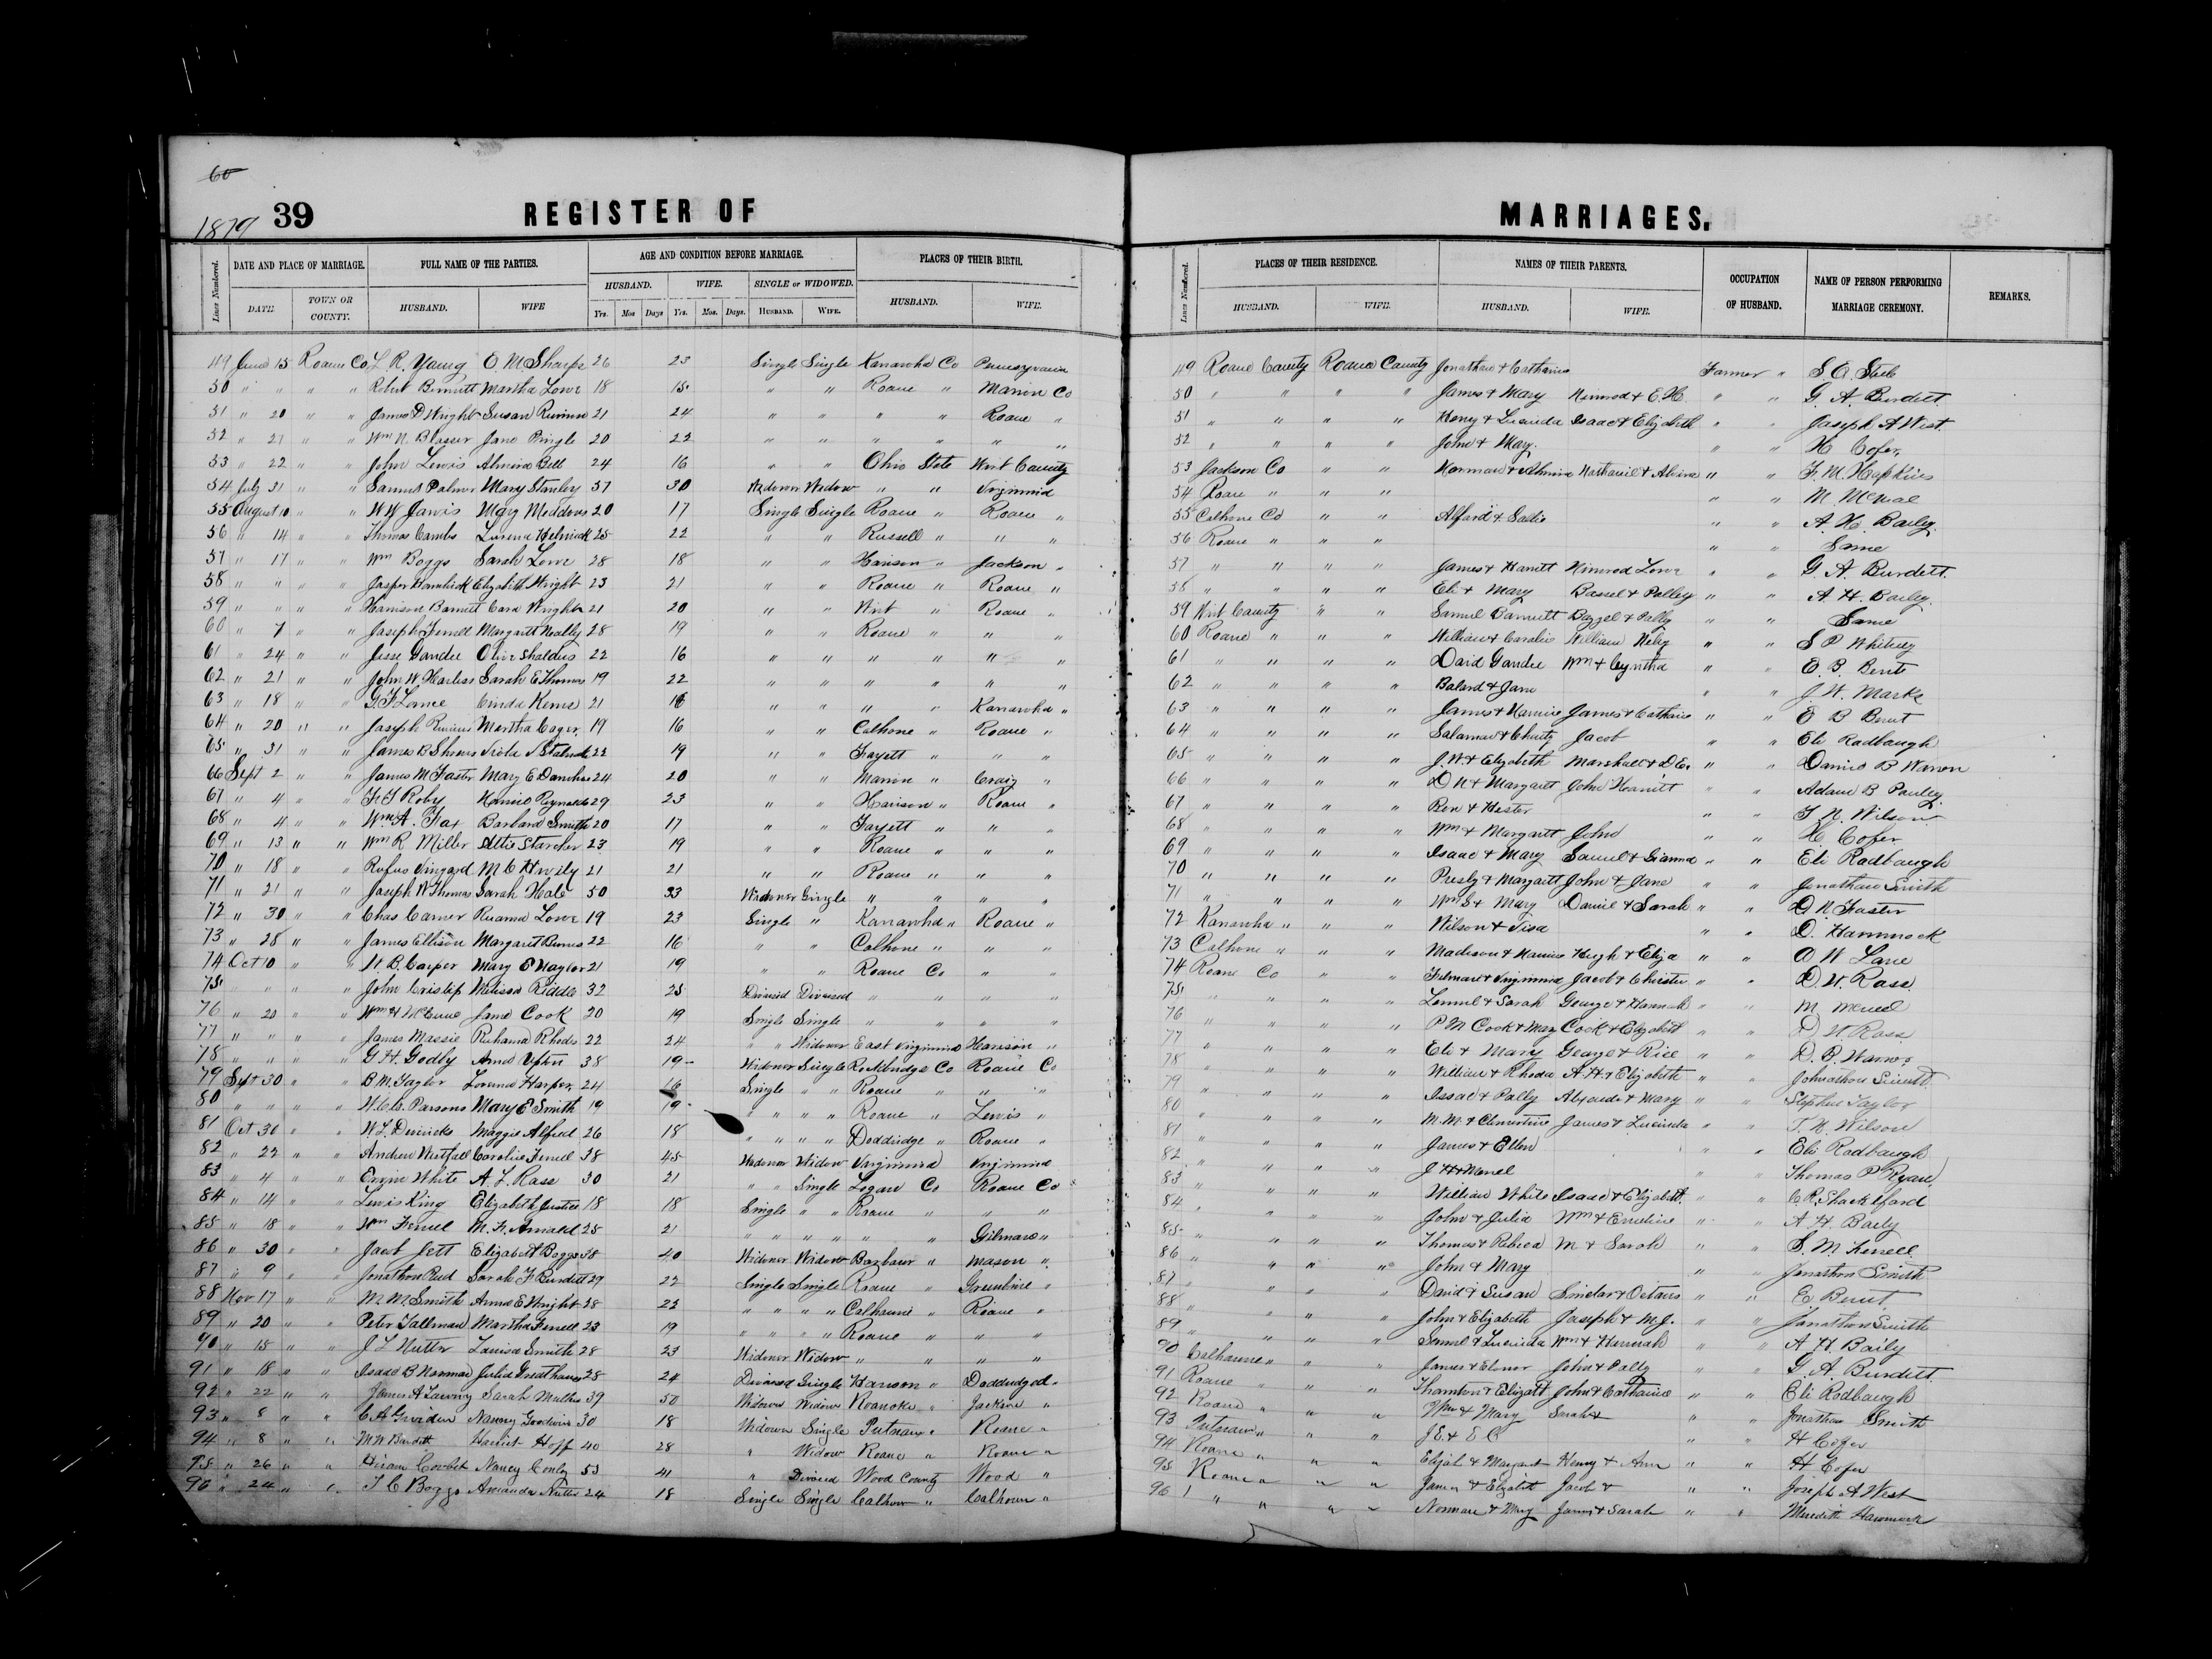 60
1879 39 REGISTER OF MARRIAGES.
Lines Numbered. DATE AND PLACE OF MARRIAGE. FULL NAME OF THE PARTIES. AGE AND CONDITION BEFORE MARRIAGE. PLACES OF THEIR BIRTH. Lines Numbered. PLACES OF THEIR RESIDENCE. NAMES OF THEIR PARENTS. OCCUPATION OF HUSBAND. NAME OF PERSON PERFORMING MARRIAGE CEREMONY. REMARKS.
DATE. TOWN OR COUNTY. HUSBAND. WIFE HUSBAND. WIFE. SINGLE or WIDOWED. HUSBAND. WIFE. HUSBAND. WIFE. HUSBAND. WIFE.
Yrs. Mos Days Yrs. Mos. Days. HUSBAND. WIFE.
49 June 15 Roane Co L R. Young O. M Sharps 26 23 Single Single Kanawha Co 49 Roane County Roane County Jonathan & Catharine Farmer " S. A. Steel
50 " " " " Robert Bennett Martha Lowe 18 15 " " Roane " Marion Co 50 " " " " James & Mary Nimrod & E. H " " G. A. Burdett.
51 " 20 " " James D Wright Susan 21 24 " " " " Roane " 51 " " " " Henry & Lucinda Isaac & Elizabeth " " Joseph A West.
52 " 27 " " Wm N. Blosser Jane Pringle 20 22 " " " " " " 52 " " " " John & Mary. " " H Cofer,
53 " 22 " " John Lewis Almira Bell 24 16 " " Ohio State Wirt County 53 Jackson Co " " Norman & Almira Nathaniel & " " F. M. Hapkins
54 July 31 " " Samuel Palmer Mary Stanley 57 30 Widower Widow " " Virginnia 54 Roane " " " " " M McNeal
55 August 10 " " W W Jarvis Mary Meddows 20 17 Single Single Roane " Roane " 55 Calhone Co " " Alford & Sallie " " A. H. Baily.
56 " 14 " " Thomas Combs Helmick 25 22 " " Russell " " " 56 Roane " " " " " Same
57 " 17 " " Wm Boggs Sarah Lowe 28 18 " " Harison " Jackson " 57 " " " " James & Harriett Nimrod Lowe " " G. A. Burdett.
58 " " " " Jasper Hamrick Elizabeth Wright 23 21 " " Roane " Roane " 58 " " " " Eli & Mary Bassel & Polley " " A. H. Bailey.
59 " " " " Harrison Barnett Cara Wright 21 20 " " Wirt " Roane " 59 Wirt County " " Samuel Barnett Bazzel & Polly " " Same
60 " 7 " " Joseph Ferrell Margarett Neally 28 19 " " Roane " " " 60 Roane " " " William & Caroline William " " S P Whitney
61 " 24 " " Jesse Gandee Olive Shaldes 22 16 " " " " " " 61 " " " " David Gandee Wm & Cyntha " " E. B. Bent
62 " 21 " " John W. Harless Sarah E Thomas 19 22 " " " " " " 62 " " " " Balard & Jane " " J. W. Marks
63 " 18 " " G F Lance Cinda Keens 21 18 " " " " Kanawha " 63 " " " " James & James & Catharine " " E B Bent
64 " 20 " " Joseph Martha Coger 19 16 " " Calhone " Roane " 64 " " " " Salamon & Charity Jacob " " Eli Radbaugh
65 " 31 " " James B 22 19 " " Fayett " " " 65 " " " " J. W. & Elizabeth Marshall & D E. " " Daniel B Warren
66 Sept 2 " " James M Foster Mary E 24 20 " " Marion " Craig " 66 " " " " D N & Margarett John " " Adam B Pauley.
67 " 4 " " F. J Roby Reynolds 29 23 " " Harison " Roane " 67 " " " " Ben & Hester " " T. N. Wilson
68 " 4 " " Wm A. Fox Barbara Smith 20 17 " " Fayett " " " 68 " " " " Wm & Margarett John " " H Cofer
69 " 13 " " Wm R Miller Allie Starcher 23 19 " " Roane " " " 69 " " " " Isaac & Mary Samuel & " " Eli Radbaugh
70 " 18 " " Rufus Vingard M C Hively 21 21 " " Roane " " " 70 " " " " Presly & Margarett John & Jane " " Jonathan Smith
71 " 21 " " Joseph W Thomas Sarah Hale 50 33 Widower Single " " " " 71 " " " " Wm S & Mary Daniel & Sarah " " D. N. Faster
72 " 30 " " Chas Carner Ruama Lowe 19 23 Single " Kanawha " Roane " 72 Kanawha " " " Wilson & " " D. Hammock
73 " 28 " " James Ellison Margaret Burns 22 16 " " Calhone " " " 73 Calhone " " " Madison & Hugh & Eliza " " O W Lane
74 Oct 10 " " W. B. Carper Mary E Naylor 21 19 " " Roane Co " " 74 Roane Co " " & Virginnia Jacob & " " D. W. Ross
75 " " " " John Crislip Melissa Riddle 32 25 Divorsed Divorsed " " " " 75 " " " " Lemuel & Sarah George & Hannah " " M McNeal
76 " 20 " " Wm H McCune Jane Cook 20 19 Single Single " " " " 76 " " " " P M Cook & May Cook & Elizabett " " D. W. Ross
77 " " " " James Massie Ruhama Rhodes 22 24 " " Widower East Virginnia Harrison " 77 " " " " Eli & Mary George & Rice " " D. B. Warner
78 " " " " G. H. Godby Anna Upton 38 19 Widower Single Rockbridge Co Roane Co 78 " " " " William & Rhoda A. H. & Elizabeth " " Johnathon Smith
79 Sept 30 " " B M. Taylor Lorena Harper 24 16 Single " Roane " " " 79 " " " " Issac & Polly & Mary " " Stephen Taylor
80 " " " " W. C. C. Parsons Mary E Smith 19 19 " " Roane " Lewis " 80 " " " " M. M. & Clementine James & Lucinda " " T. N. Wilson
81 Oct 30 " " W. L. Maggie Alfred 26 18 " " Doddridge " Roane " 81 " " " " James & Ellen " " Eli Radbaugh
82 " 22 " " Andrew Westfall Caroline Ferrell 38 45 Widower Widow Virginnia Virginnia 82 " " " " J " " Thomas P Ryan
83 " 4 " " White A. L. Rase 30 21 " " Single Logan Co Roane Co 83 " " " " William White Isaac & Elizabett. " " C R Shackelford
84 " 14 " " Lewis King Elizabeth Justice 18 18 Single " Roane " " " 84 " " " " John & Julia Wm & " " A H. Baily
85 " 18 " " Wm Ferrell M. F. Arnald 25 21 " " " " Gilmare " 85 " " " " Thomas & Rebeca M & Sarah " " S. M Ferrell
86 " 30 " " Jacob Jett Elizabeth Boggs 38 40 Widower Widow Barbour " Mason " 86 " " " " John & Mary " " Jonathon Smith
87 " 9 " " Jonathon Reed Sarah F Burdett 29 22 Single Single Roane " " 87 " " " " David & Susan Sinclar & " " E Bent
88 Nov 17 " " W. M. Smith Anna E Wright 28 22 " " Calhaun " Roane " 88 " " " " John & Elizabeth Joseph & M. J. " " Jonathon Smith
89 " 20 " " Peter Tallman Martha Ferrell 23 19 " " Roane " " " 89 " " " " Samuel & Lucinda Wm & Hannah " " A H. Baily
90 " 15 " " J L Nutter Louisa Smith 28 23 Widower Widow " " " " 90 Calhaune " " " James & Elenor John & Polly " " G. A. Burdett
91 " 18 " " Isaac B Norman Julia 28 24 Divorsed Single Harison " " 91 Roane " " " Thornton & Elizabett John & Catharine " " Eli Radbaugh
92 " 22 " " James A Sarah 39 50 Widower Widow Roanoke " Jackson " 92 Roane " " " Wm & Mary Sarah & " " Jonathan Smith
93 " 8 " " C A Nancy Goodwin 30 18 Widower Single Putnam " Roane " 93 Putnam " " " J E. & E C " " H Cofer
94 " 8 " " M W Burdett Harriet Hoff 40 28 " Widow Roane " Roane " 94 Roane " " " Elijah & Margaret Henry & Ann " " H Cofer
95 " 26 " " Hiram Corbet Nancy Conly 53 41 " Divorced Wood County Wood " 95 Roane " " " James & Elizabett Jacob & " " Joseph A West
96 " 24 " " T. C Boggs Amanda Nutter 24 18 Single Single Calhoun " Calhoun " 96 " " " " Norman & Mary James & Sarah " " Meredith Hammock